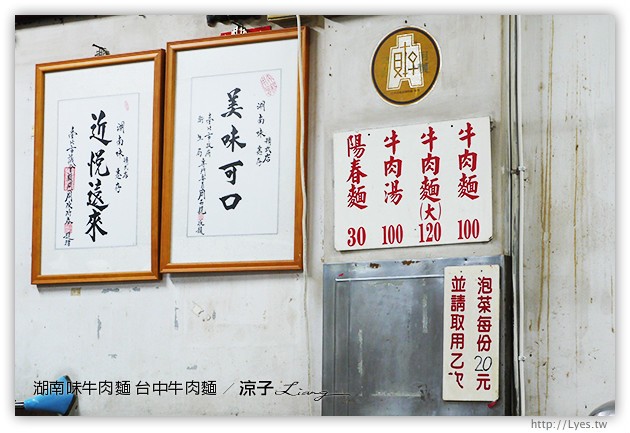 美味可口
湖南味
惠存
近悅遠來
湖南味
惠存
牛肉麵 100
牛肉麵(大) 120
牛肉湯 100
陽春麵 30
泡菜每份20元
並請取用乙次
湖南味牛肉麵 台中牛肉麵 / 涼子 Liang
http://Lyes.tw